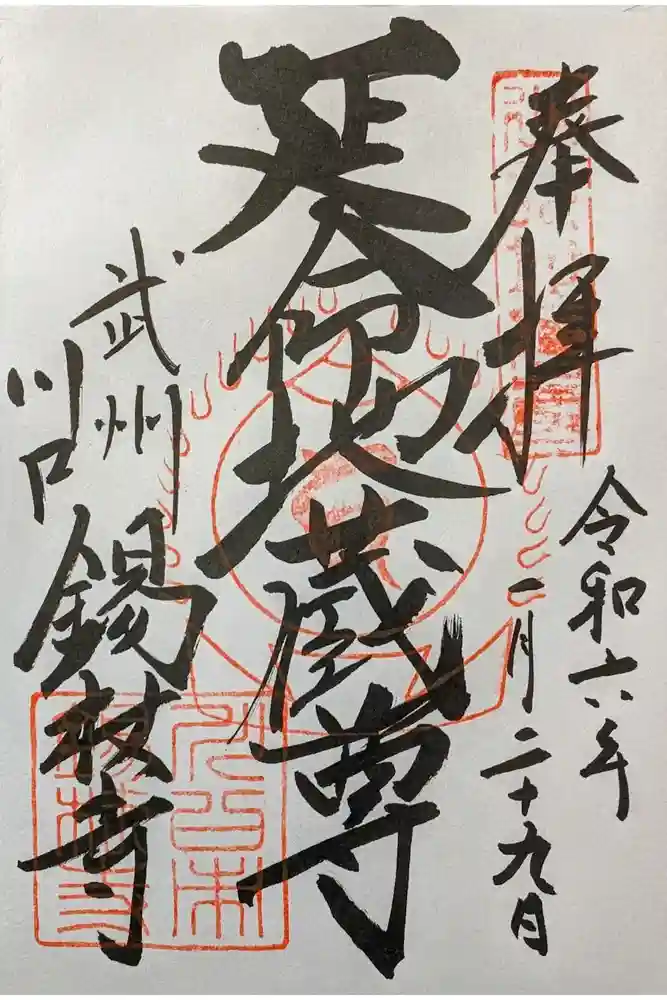 奉拝
令和六年
一月二十九日
延命地蔵尊
武州
川口
錫杖寺